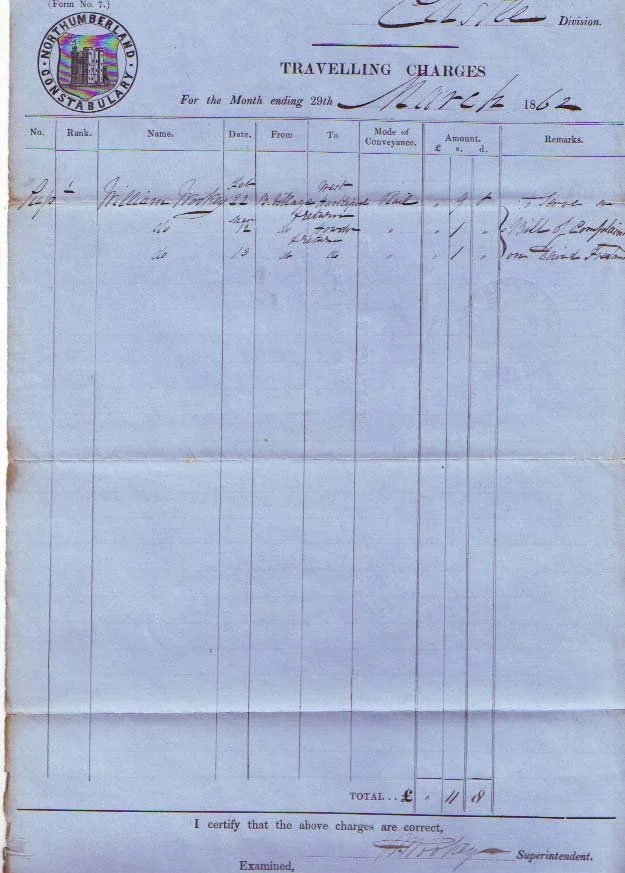 (Form No. 7.)
Castle Division.
NORTHUMBERLAND CONSTABULARY
TRAVELLING CHARGES
For the Month ending 29th March 1862
No. Rank. Name. Date. From To Mode of Conveyance. Amount. £ s. d. Remarks.
Supt William Wookey Feb 22 B. Village West Hartlepool & return Rail " 9 8 To Serve a
do Mar 12 do Howdon & return " " 1 " Bill of Complaint
do 13 do do " " 1 " on David
TOTAL .. £ " 11 8
I certify that the above charges are correct,
W Wookey Superintendent.
Examined,